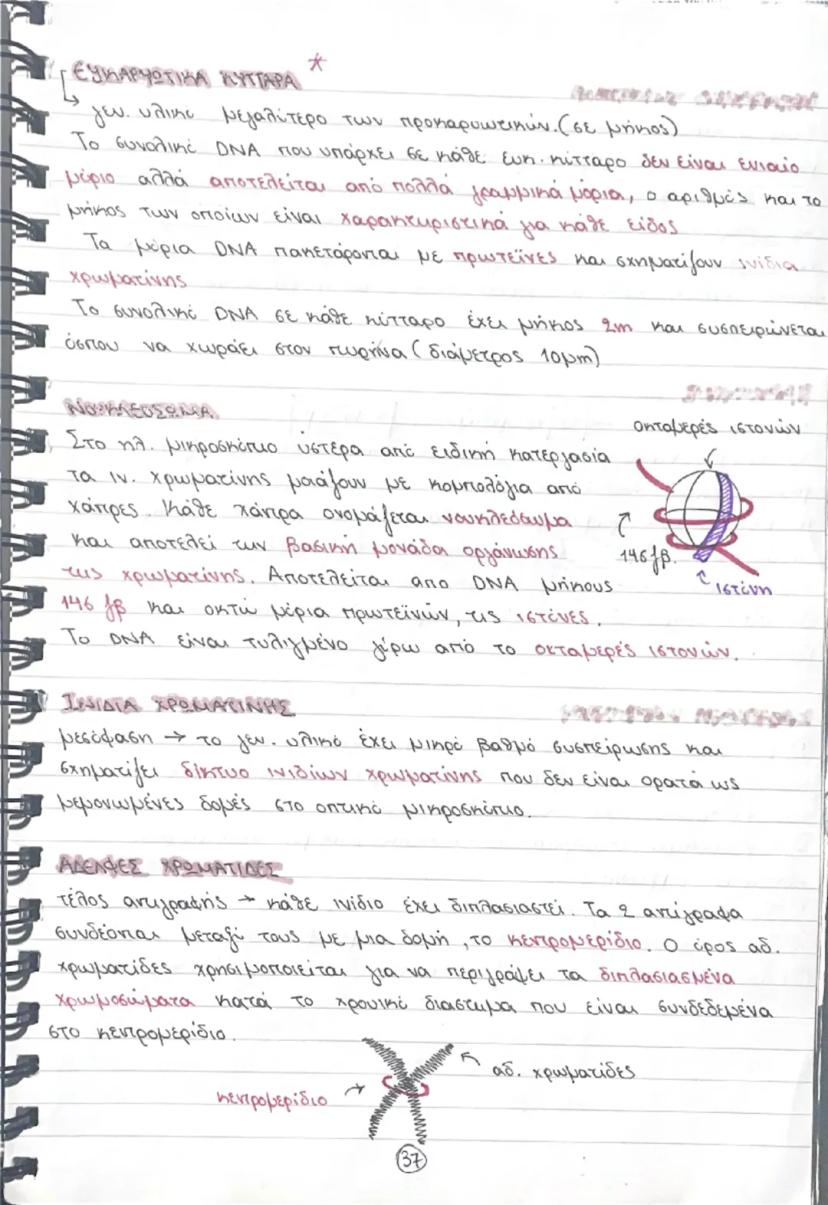 ΕΥΚΑΡΥΩΤΙΚΑ ΚΥΤΤΑΡΑ *
↳ γεν. υλικό μεγαλύτερο των προκαρυωτικών. (σε μήκος)
Το συνολικό DNA που υπάρχει σε κάθε ευκ. κύτταρο δεν είναι ενιαίο
μόριο αλλά αποτελείται από πολλά γραμμικά μόρια, ο αριθμός και το
μήκος των οποίων είναι χαρακτηριστικά για κάθε είδος
Τα μόρια DNA πακετάρονται με πρωτεΐνες και σχηματίζουν ινίδια
χρωματίνης
Το συνολικό DNA σε κάθε κύτταρο έχει μήκος 2m και συσπειρώνεται
ώσπου να χωράει στον πυρήνα (διάμετρος 10μm)
ΝΟΥΚΛΕΟΣΩΜΑ
Στο ηλ. μικροσκόπιο ύστερα από ειδική κατεργασία
τα ιν. χρωματίνης μοιάζουν με κομπολόγια από
χάντρες. Κάθε χάντρα ονομάζεται νουκλεόσωμα
και αποτελεί την βασική μονάδα οργάνωσης
της χρωματίνης. Αποτελείται απο DNA μήκους
146 ζβ και οκτώ μόρια πρωτεϊνών, τις ιστόνες.
Το DNA είναι τυλιγμένο γύρω από το οκταμερές ιστονών.
οκταμερές ιστονών
146 ζβ.
ιστόνη
ΙΝΙΔΙΑ ΧΡΩΜΑΤΙΝΗΣ
μεσόφαση → το γεν. υλικό έχει μικρό βαθμό συσπείρωσης και
σχηματίζει δίκτυο ινιδίων χρωματίνης που δεν είναι ορατά ως
μεμονωμένες δομές στο οπτικό μικροσκόπιο.
ΑΔΕΛΦΕΣ ΧΡΩΜΑΤΙΔΕΣ
τέλος αντιγραφής → κάθε ινίδιο έχει διπλασιαστεί. Τα 2 αντίγραφα
συνδέονται μεταξύ τους με μια δομή, το κεντρομερίδιο. Ο όρος αδ.
χρωματίδες χρησιμοποιείται για να περιγράψει τα διπλασιασμένα
χρωμοσώματα κατά το χρονικό διάστημα που είναι συνδεδεμένα
στο κεντρομερίδιο.
αδ. χρωματίδες
κεντρομερίδιο
37